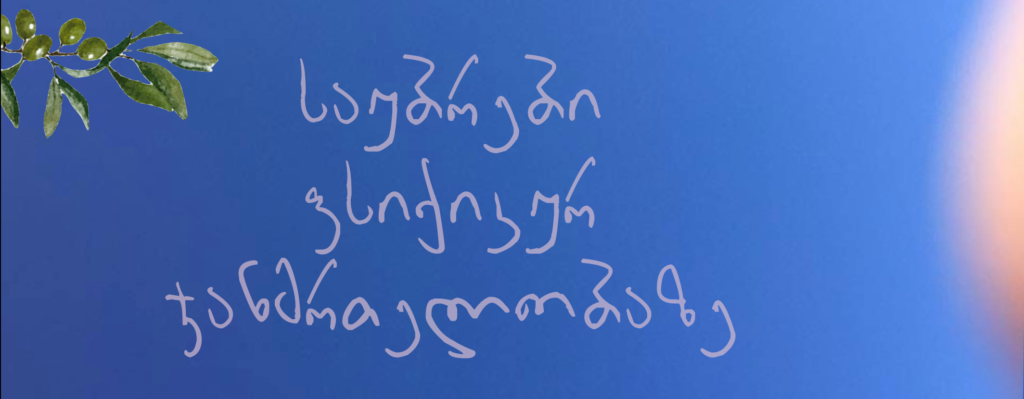 საუბრები
ფსიქიკურ
ჯანმრთელობაზე